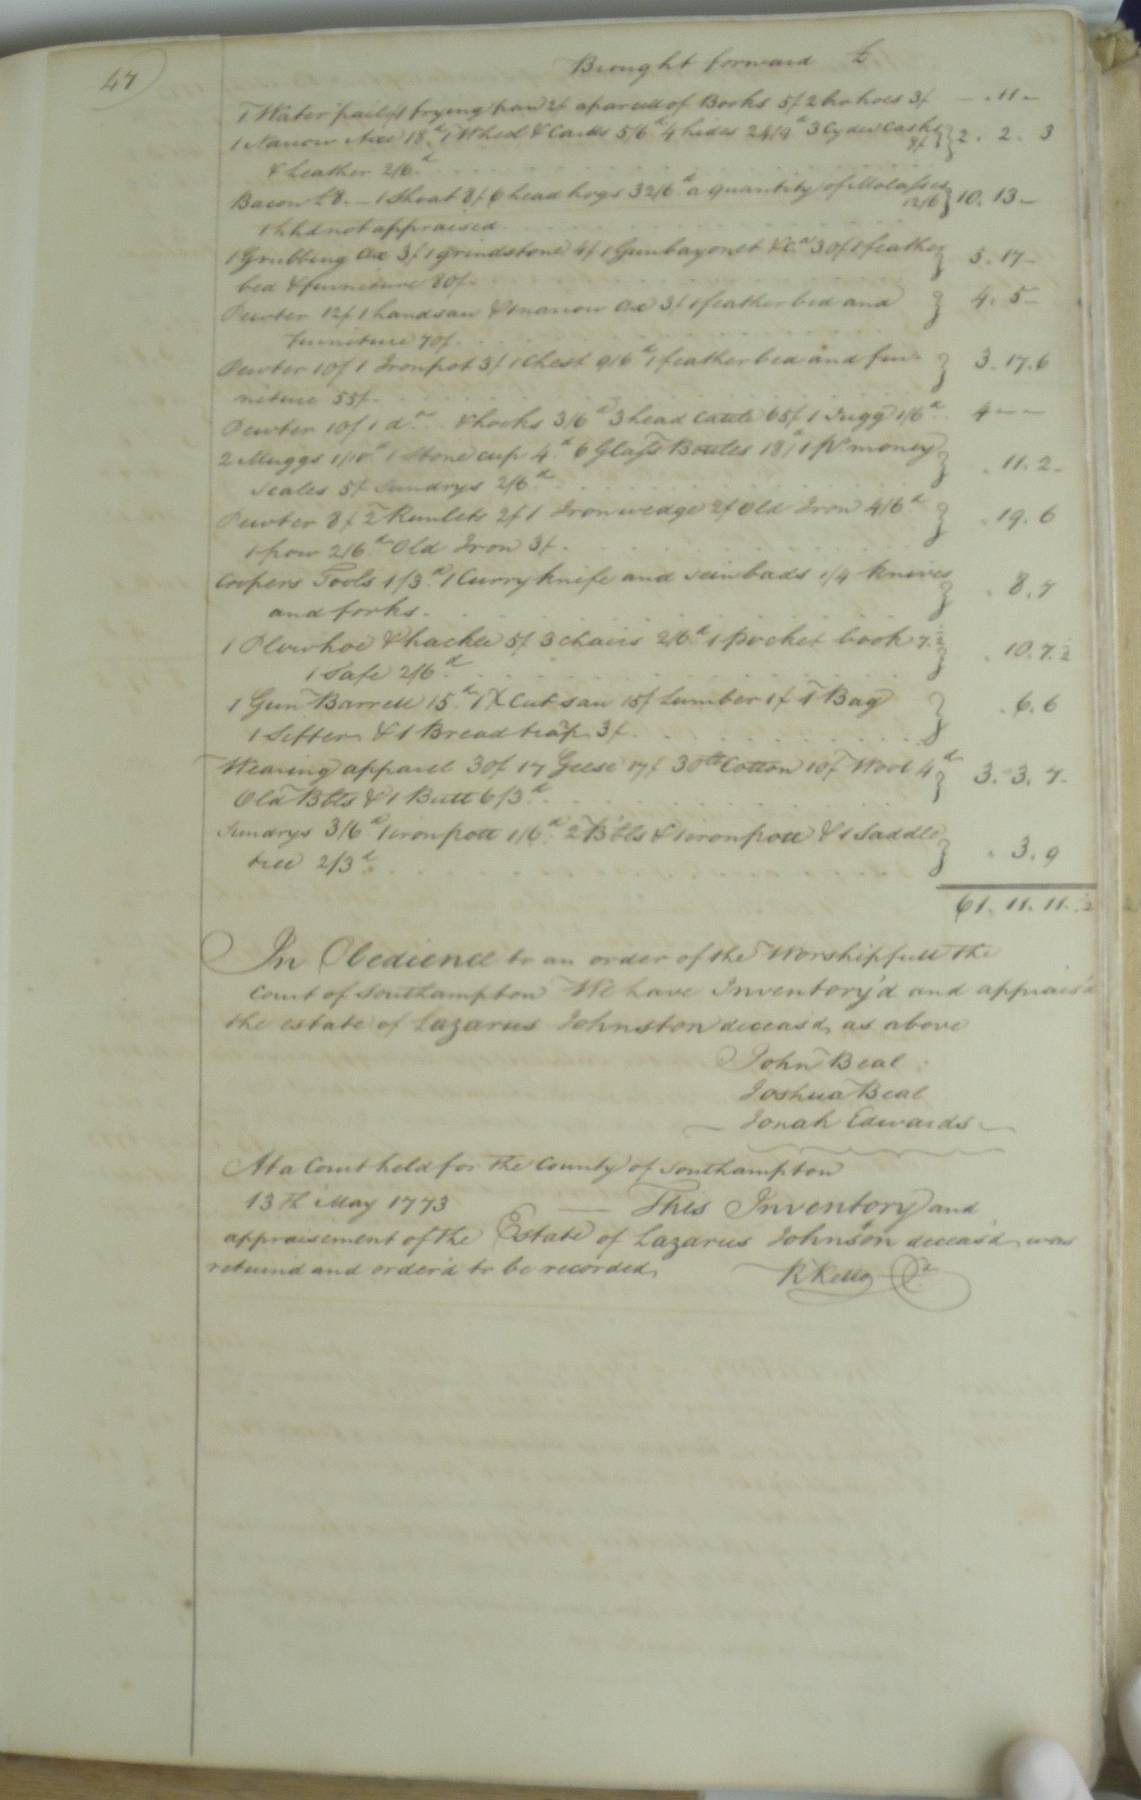 47
Brought forward £
1 Water pail 1/ 1 frying pan 2/ a parcell of Books 5/ 2 ho hoes 3/ - . 11 -
1 Narrow Axe 18.d 1 Wheel & Cards 5/6.d 4 hides 24/9.d 3 Cyder Casks 8/ } 2 . 2 . 3
& Leather 2/6.d
Bacon £8. - 1 Shoat 8/ 6 head hogs 32/6.d a quantity of Molasses 12/6 } 10. 13 -
1 hhd not appraised
1 Grubbing Ax 3/ 1 grindstone 4/ 1 Gun bayonet &C.a 30/ 1 feather } 5 . 17 -
bed & furniture 80/.
Pewter 12/ 1 handsaw & 1 narrow Ax 3/ 1 feather bed and } 4 . 5 -
furniture 70/.
Pewter 10/ 1 Iron pot 3/ 1 Chest 9/6.d 1 feather bed and fur- } 3 . 17 . 6
niture 55/.
Pewter 10/ 1 do & hooks 3/6.d 3 head Cattle 65/ 1 Jugg 1/6.d 4 - -
2 Muggs 1/10.d 1 Stone cup 4.d 6 Glass Bottles 18.d 1 pr. money } . 11 . 2 -
Scales 5/ Sundrys 2/6.d
Pewter 8/ 2 Runlets 2/ 1 Iron wedge 2/ Old Iron 4/6.d } . 19 . 6
1 2/6.d Old Iron 3/.
Coopers Tools 1/3.d 1 Curry knife and 1/4 knives } . 8 . 7
and forks.
1 Plow hoe & hackle 5/ 3 chairs 2/6.d 1 pocket book 7.½ } . 10 . 7 . ½
1 Safe 2/6.d
1 Gun Barrell 15.d 1 X Cut saw 15/ Lumber 1/ 1 Bag } . 6 . 6
1 Sifter & 1 Bread tray 3/.
Wearing apparel 30/ 17 Geese 17/ 30 lb Cotton 10/ Wool 4.d } 3 . 3 . 7 -
Old Bbls & 1 Butt 6/3.d
Sundrys 3/6.d 1 iron pott 1/6.d 2 Bbls & 1 iron pott & 1 Saddle } . 3 . 9
tree 2/3.d
61. 11. 11. ½
In Obedience to an order of the Worshipfull the
Court of Southampton We have Inventory'd and apprais'd
the estate of Lazarus Johnston deceas'd, as above
John Beal
Joshua Beal
Jonah Edwards
At a Court held for the County of Southampton
13th May 1773 This Inventory and
appraisement of the Estate of Lazarus Johnson deceas'd was
return'd and order'd to be recorded,
R Kello